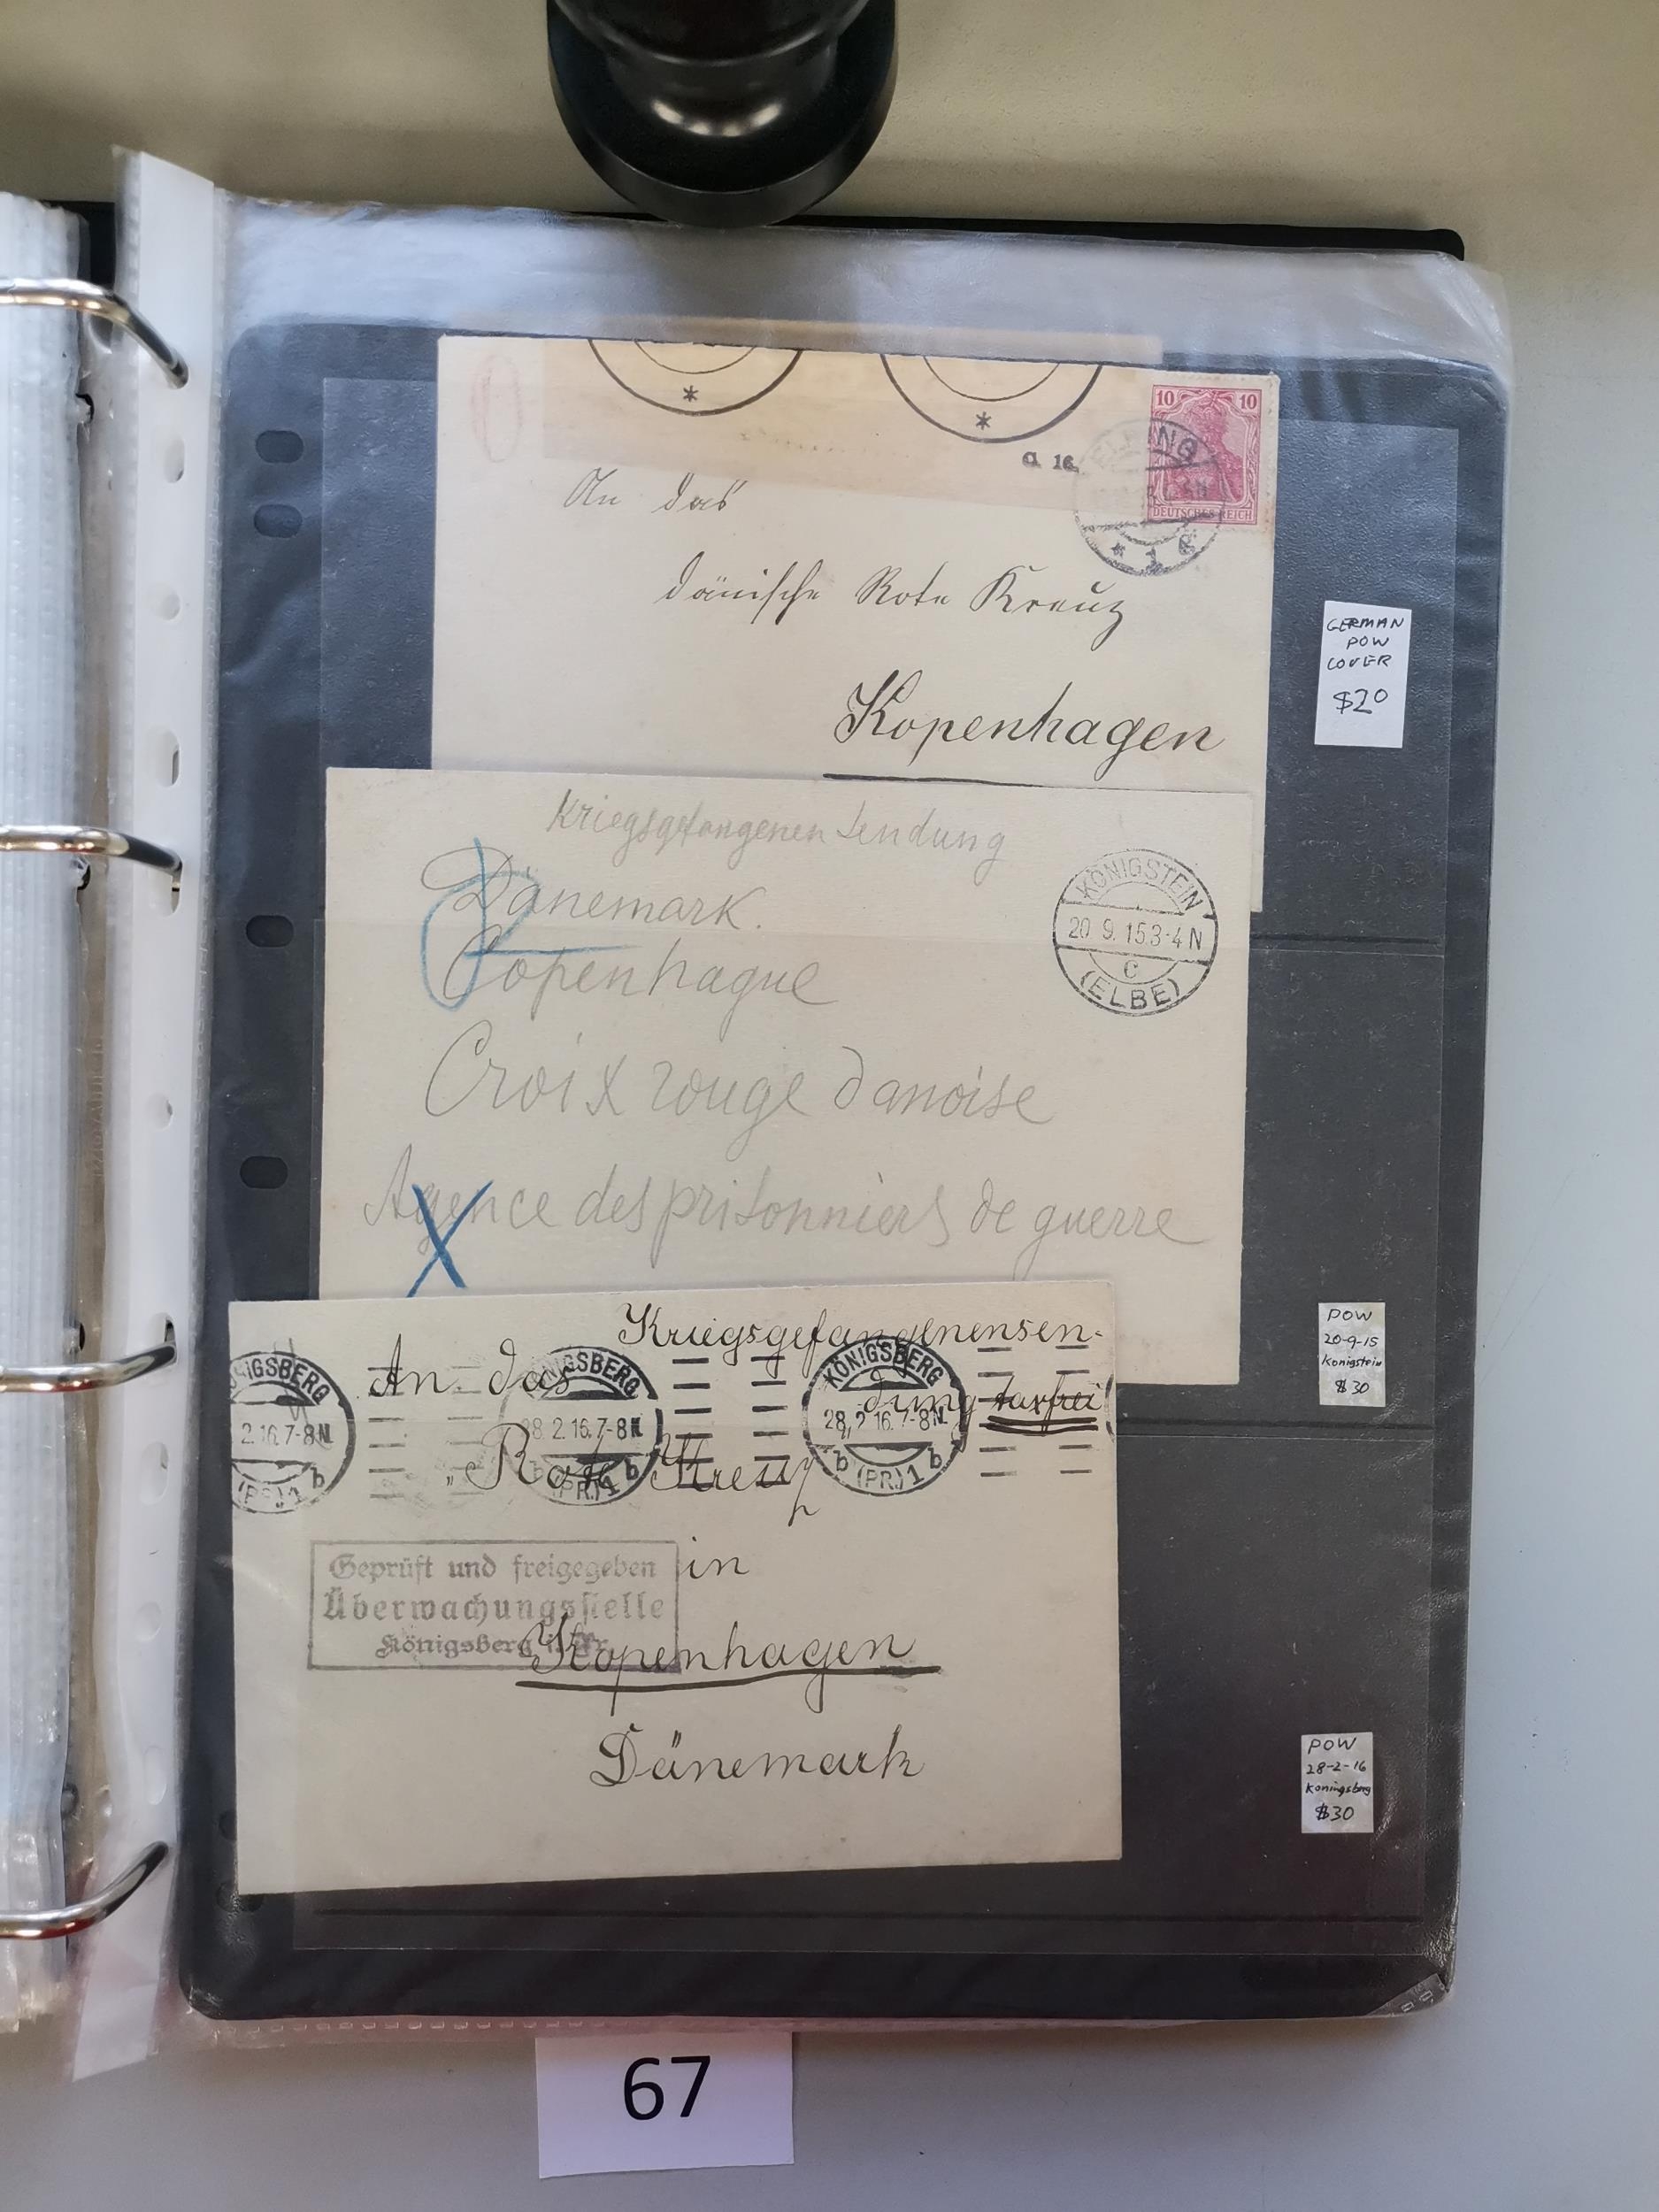 10 10
DEUTSCHES REICH
ELBING
* 1 g
a 16.
An das
dänische Rote Kreuz
Kopenhagen
GERMAN
POW
COVER
$20
Kriegsgefangenen Sendung
Dänemark.
Copenhague
Croix rouge danoise
Agence des prisonniers de guerre
KÖNIGSTEIN
20 9. 15 3-4 N
c
(ELBE)
X
POW
20-9-15
Konigstein
$30
Kriegsgefangenensen-
dung taxfrei
An das
"Rote Kreuz
in
Kopenhagen
Dänemark
KÖNIGSBERG
2.16.7-8N
(PR.) 1 b
KÖNIGSBERG
28.2.16.7-8N
b (PR.) 1 b
KÖNIGSBERG
28.2.16.7-8N
b (PR.) 1 b
Geprüft und freigegeben
Überwachungsstelle
Königsberg i. Pr.
POW
28-2-16
Koningsberg
$30
67